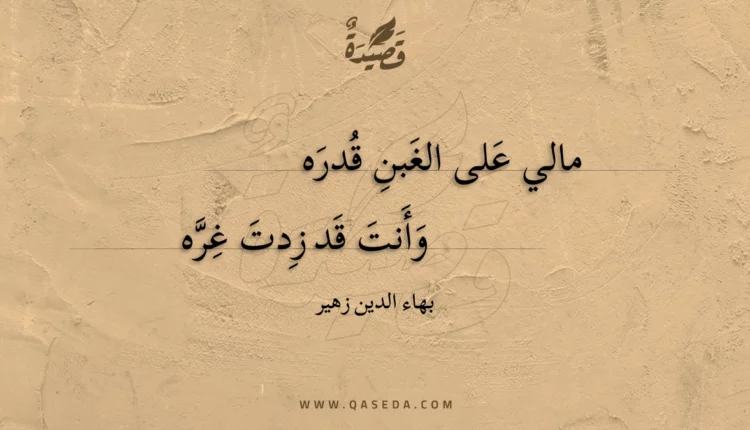 قَصِيدَةٌ
مالي عَلى الغَبنِ قُدرَه
وَأَنتَ قَد زِدتَ غِرَّه
بهاء الدين زهير
WWW.QASEDA.COM